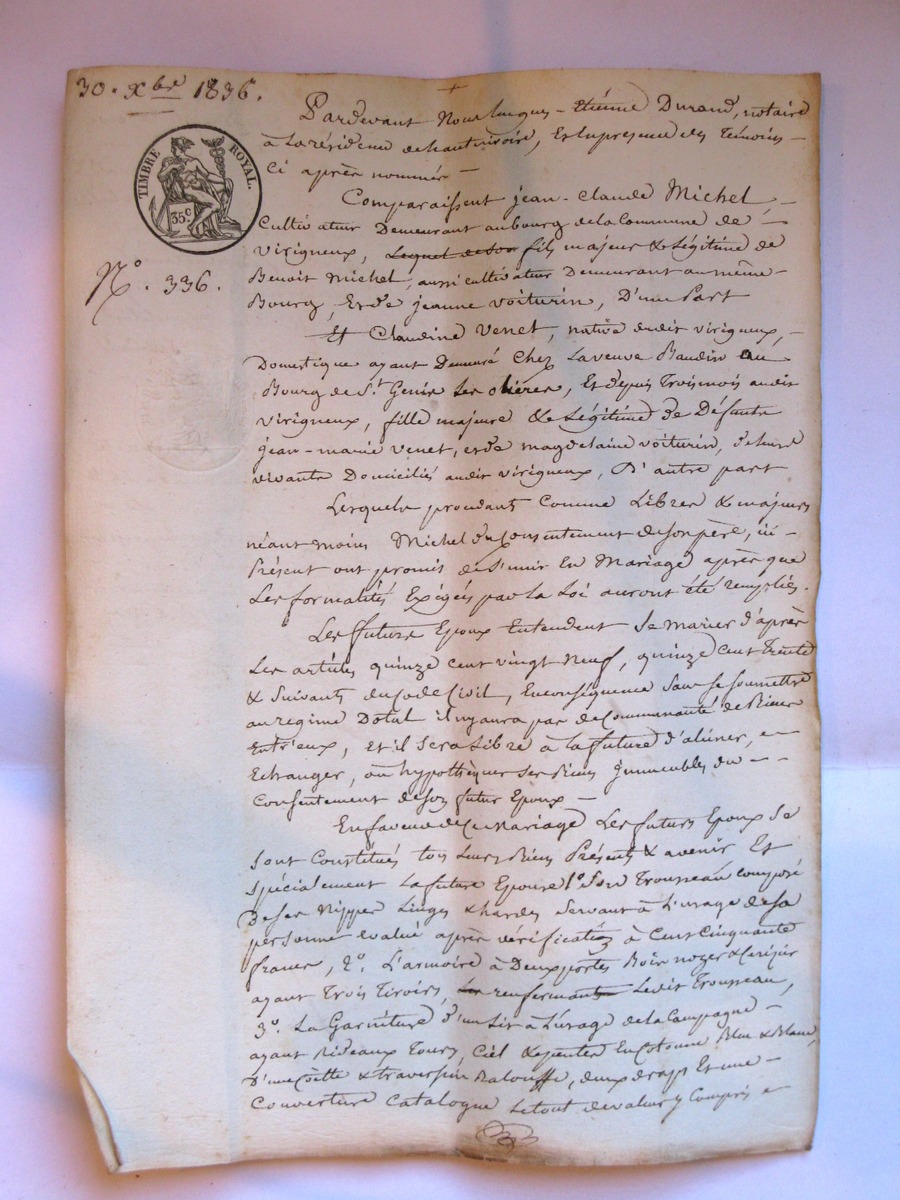 30. Xbre 1836.
TIMBRE ROYAL.
35.c
No. 336.
Pardevant Nous Jacques-Etiénne Durand, notaire
à La résidence de hauterivoire, Et En présence des Témoins
Ci après nommés
Comparaissent jean-Claude Michel,
Cultivateur Demeurant au bourg de la Commune de
virigneux, Lequel de son fils majeur & Légitime de
Benoit Michel, aussi cultivateur Demeurant au même
Bourg, Et de jeanne voiturin, D'une Part
Et Claudine Venet, native dudit virigneux,
Domestique ayant Demeuré Chez La veuve Baudin au
Bourg de St. Genis Les oliéres, Et depuis Trois mois audit
virigneux, fille majeure & Légitime de Défunts
jean-marie venet, et de magdelaine voiturin, de leur
vivants Domiciliés audit virigneux, D'autre part
Lesquels procédants Comme Libres & majeurs
néantmoins Michel du Consentement de son père, ici
Présent ont promis de S'unir En Mariage après que
Les formalités Exigées par La Loi auront été remplies.
Les futurs Epoux Entendent Se marier d'après
Les articles quinze cent vingt neuf, quinze Cent Trente
& Suivants du Code Civil, En conséquence Sans Se Soumettre
au régime Dotal il n'y aura pas de Communauté de Biens
Entr'eux, Et il Sera Libre à La future d'aliéner,
Echanger, ou hypothéquer Ses Biens Immeubles du
Consentement de Son futur Epoux
En faveur de Ce Mariage Les futurs Epoux Se
Sont Constitués tous Leurs Biens Présents & avenir Et
Spécialement La future Epouse 1o. Son Trousseau composé
De Ses Nippes Linges & hardes Servant à L'usage de Sa
personne évalué après vérification à Cent Cinquante
francs, 2o. L'armoire à Deux portes Bois noyer & Cerisier
ayant Trois Tiroirs, renfermant Ledit Trousseau,
3o. La Garniture d'un Lit à L'usage de La Campagne
ayant Rideaux Tours, Ciel & pentes En Cotonne Bleu & Blanc,
D'une Coëtte & traversin Balouffe, deux draps Et une
Couverture Catalogue Le tout de valeur y Compris